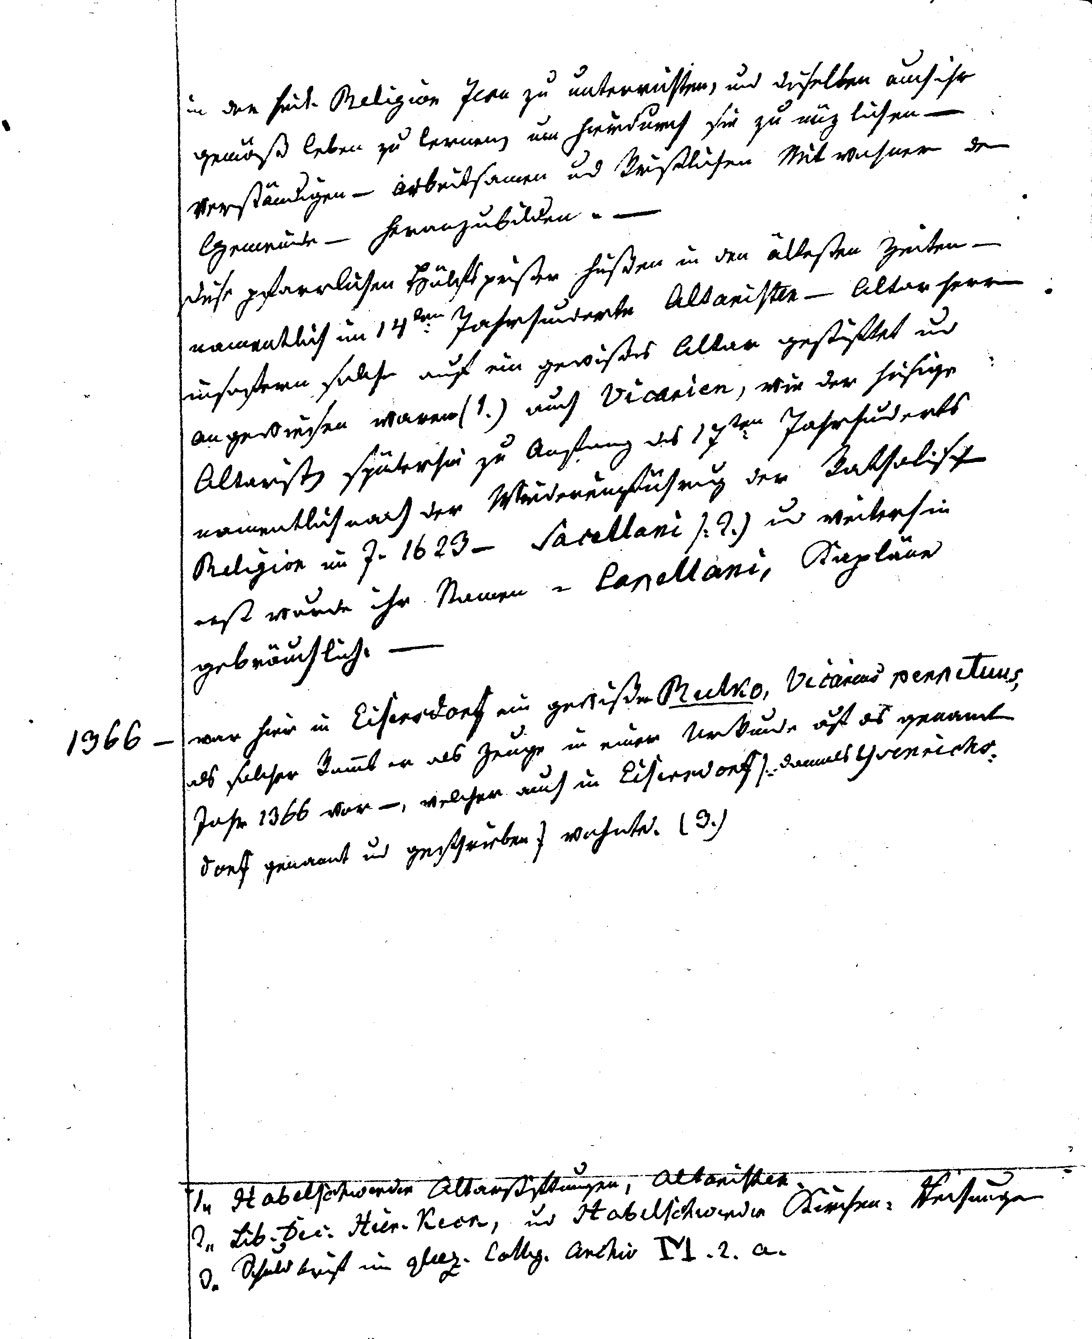 in der Religion Jesu zu unterrichten, und dieselben auch ihr
gemäß leben zu lernen, um hierdurch sie zu nüzlichen —
verständigen — arbeitsamen und kristlichen Mitwohner der
Gemeinde — heranzubilden. —
Diese pfarrlichen Hülfspriester hießen in den ältesten Zeiten —
namentlich im 14ten Jahrhunderte Altaristen — Altarherrn
insofern solche auf ein gewißes Altar gestiftet und
angewiesen waren (1.) auch Vicarien, wie der hiesige
Altarist, späterhin zu Anfang des 17ten Jahrhunderts
namentlich nach der Wiedereinführung der Katholisch
Religion im J. 1623 — Sacellani (: 2.) und weiterhin
erst wurde ihr Namen = Capellani, Kapläne
gebräuchlich. —
1366 — war hier in Eisersdorf ein gewißer Rutko, Vicarius perpetuus,
als solcher kommt er als Zeuge in einer Urkunde auf das genannt
Jahr 1366 vor —, welcher auch in Eisersdorf (: damals
dorf genannt und geschrieben) wohnte. (3.)
1. Habelschwerdter Altarstiftungen, Altaristen.
2. Lib. Dec. Hier. Keck, und Habelschwerdter Kirchen=
3. im glaz. Colleg. Archiv M. 2. a.